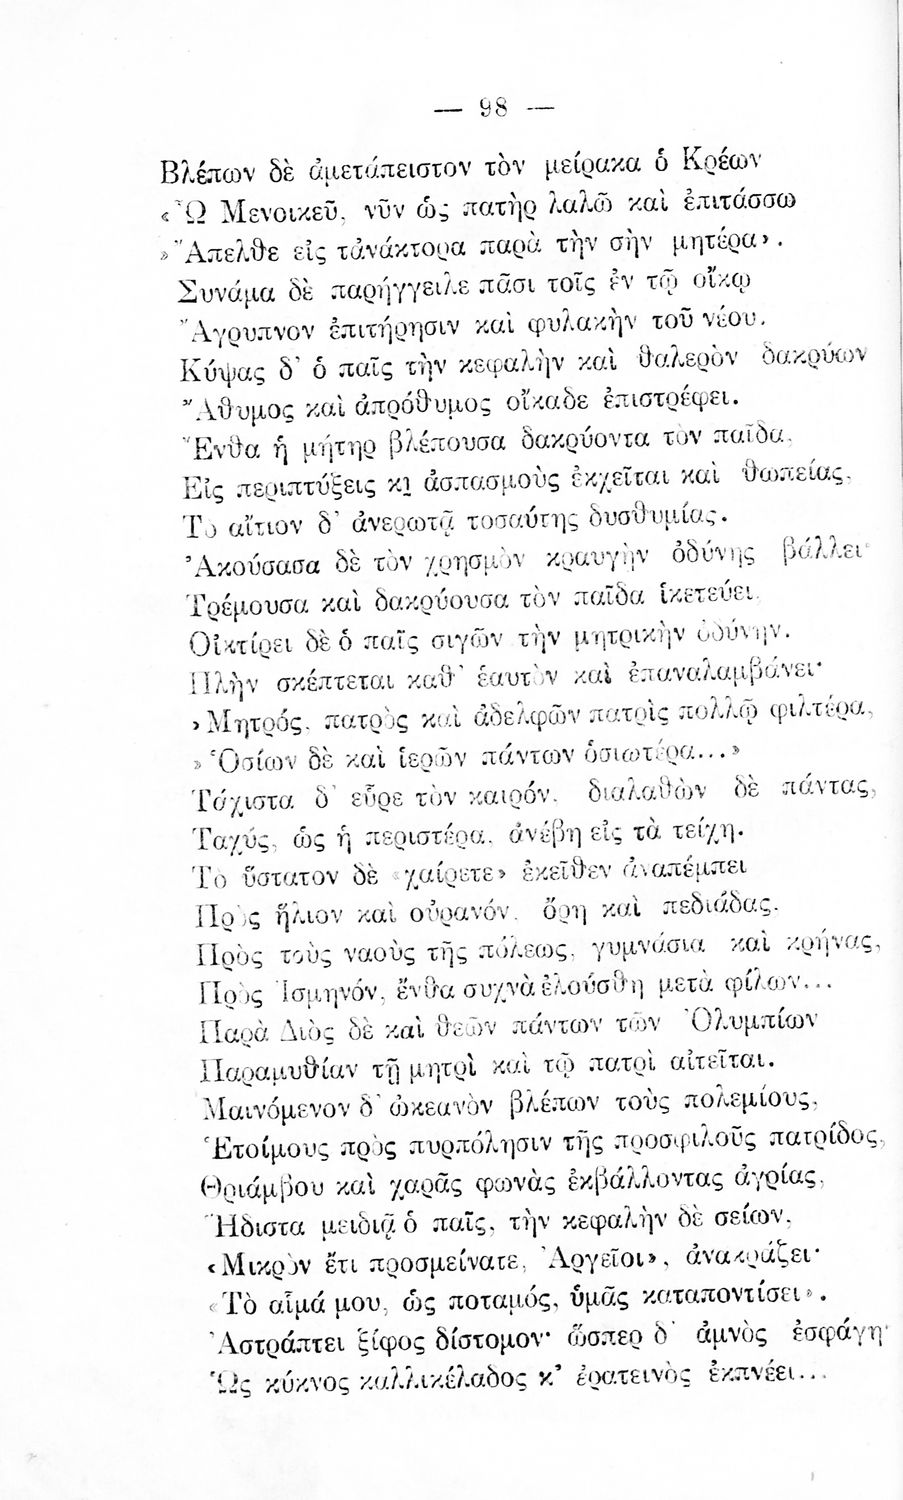 — 98 —
Βλέπων δὲ ἀμετάπειστον τὸν μείρακα ὁ Κρέων
«Ὦ Μενοικεῦ, νῦν ὡς πατὴρ λαλῶ καὶ ἐπιτάσσω
»Ἄπελθε εἰς τἀνάκτορα παρὰ τὴν σὴν μητέρα».
Συνάμα δὲ παρήγγειλε πᾶσι τοῖς ἐν τῷ οἴκῳ
Ἄγρυπνον ἐπιτήρησιν καὶ φυλακὴν τοῦ νέου.
Κύψας δ' ὁ παῖς τὴν κεφαλὴν καὶ θαλερὸν δακρύων
Ἄθυμος καὶ ἀπρόθυμος οἴκαδε ἐπιστρέφει.
Ἔνθα ἡ μήτηρ βλέπουσα δακρύοντα τὸν παῖδα,
Εἰς περιπτύξεις κι ἀσπασμοὺς ἐκχεῖται καὶ θωπείας,
Τὸ αἴτιον δ' ἀνερωτᾷ τοσαύτης δυσθυμίας.
Ἀκούσασα δὲ τὸν χρησμὸν κραυγὴν ὀδύνης βάλλει·
Τρέμουσα καὶ δακρύουσα τὸν παῖδα ἱκετεύει.
Οἰκτίρει δὲ ὁ παῖς σιγῶν τὴν μητρικὴν ὀδύνην.
Πλὴν σκέπτεται καθ' ἑαυτὸν καὶ ἐπαναλαμβάνει·
»Μητρός, πατρὸς καὶ ἀδελφῶν πατρὶς πολλῷ φιλτέρα,
»Ὁσίων δὲ καὶ ἱερῶν πάντων ὁσιωτέρα...»
Τάχιστα δ' εὗρε τὸν καιρόν, διαλαθὼν δὲ πάντας,
Ταχύς, ὡς ἡ περιστέρα, ἀνέβη εἰς τὰ τείχη.
Τὸ ὕστατον δὲ «χαίρετε» ἐκεῖθεν ἀναπέμπει
Πρὸς ἥλιον καὶ οὐρανόν, ὄρη καὶ πεδιάδας.
Πρὸς τοὺς ναοὺς τῆς πόλεως, γυμνάσια καὶ κρήνας,
Πρὸς Ἰσμηνόν, ἔνθα συχνὰ ἐλούσθη μετὰ φίλων...
Παρὰ Διὸς δὲ καὶ θεῶν πάντων τῶν Ὀλυμπίων
Παραμυθίαν τῇ μητρὶ καὶ τῷ πατρὶ αἰτεῖται.
Μαινόμενον δ' ὠκεανὸν βλέπων τοὺς πολεμίους,
Ἑτοίμους πρὸς πυρπόλησιν τῆς προσφιλοῦς πατρίδος,
Θριάμβου καὶ χαρᾶς φωνὰς ἐκβάλλοντας ἀγρίας,
Ἥδιστα μειδιᾷ ὁ παῖς, τὴν κεφαλὴν δὲ σείων,
«Μικρὸν ἔτι προσμείνατε, Ἀργεῖοι», ἀνακράζει·
«Τὸ αἷμά μου, ὡς ποταμός, ὑμᾶς καταποντίσει».
Ἀστράπτει ξίφος δίστομον· ὥσπερ δ' ἀμνὸς ἐσφάγη·
Ὡς κύκνος καλλικέλαδος κ' ἐρατεινὸς ἐκπνέει...